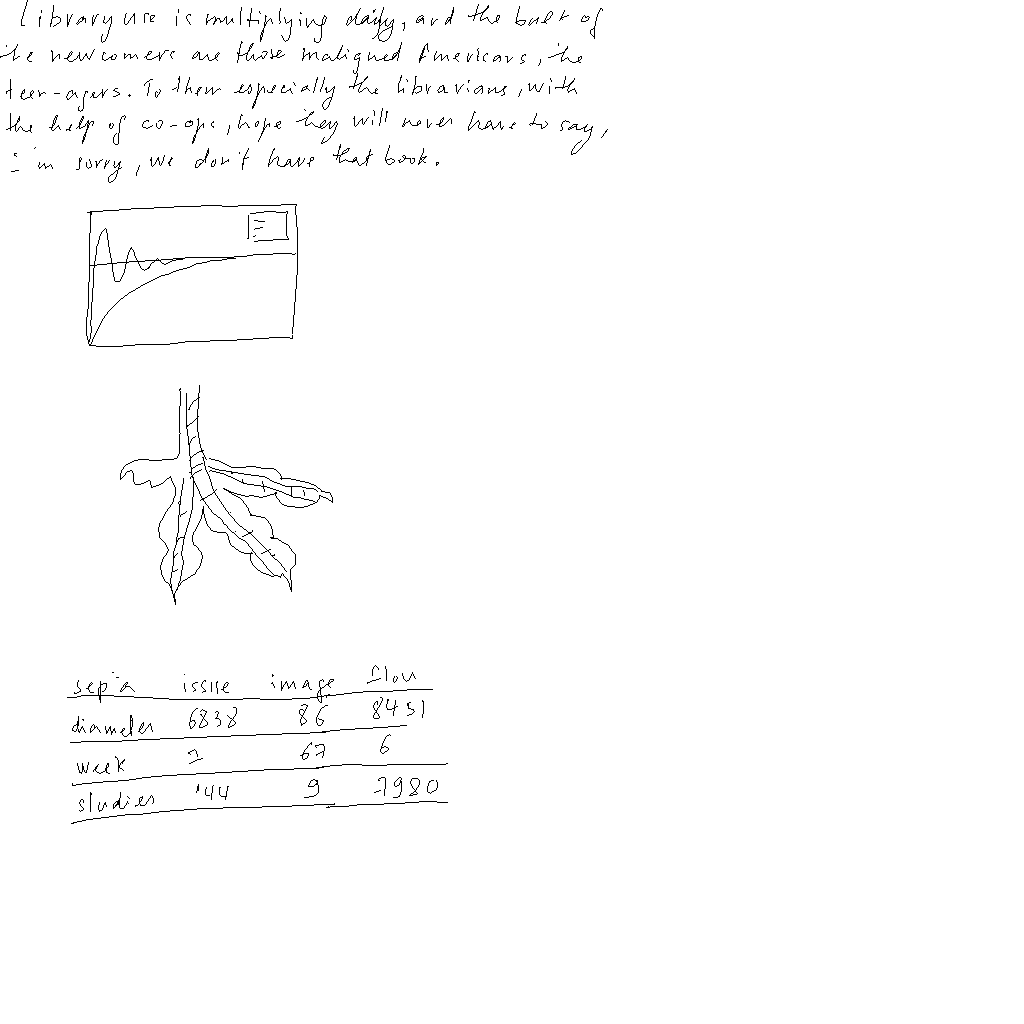 Library use is multiplying daily, and the bulk of
the newcomers are those maligned Americans, the
teen-agers. To them especially the librarians, with
the help of co-ops, hope they will never have to say,
I'm sorry, we don't have that book.
sepia issue image flow
diameter 6838 86 8451
week 1 67 6
studies 144 9 7980